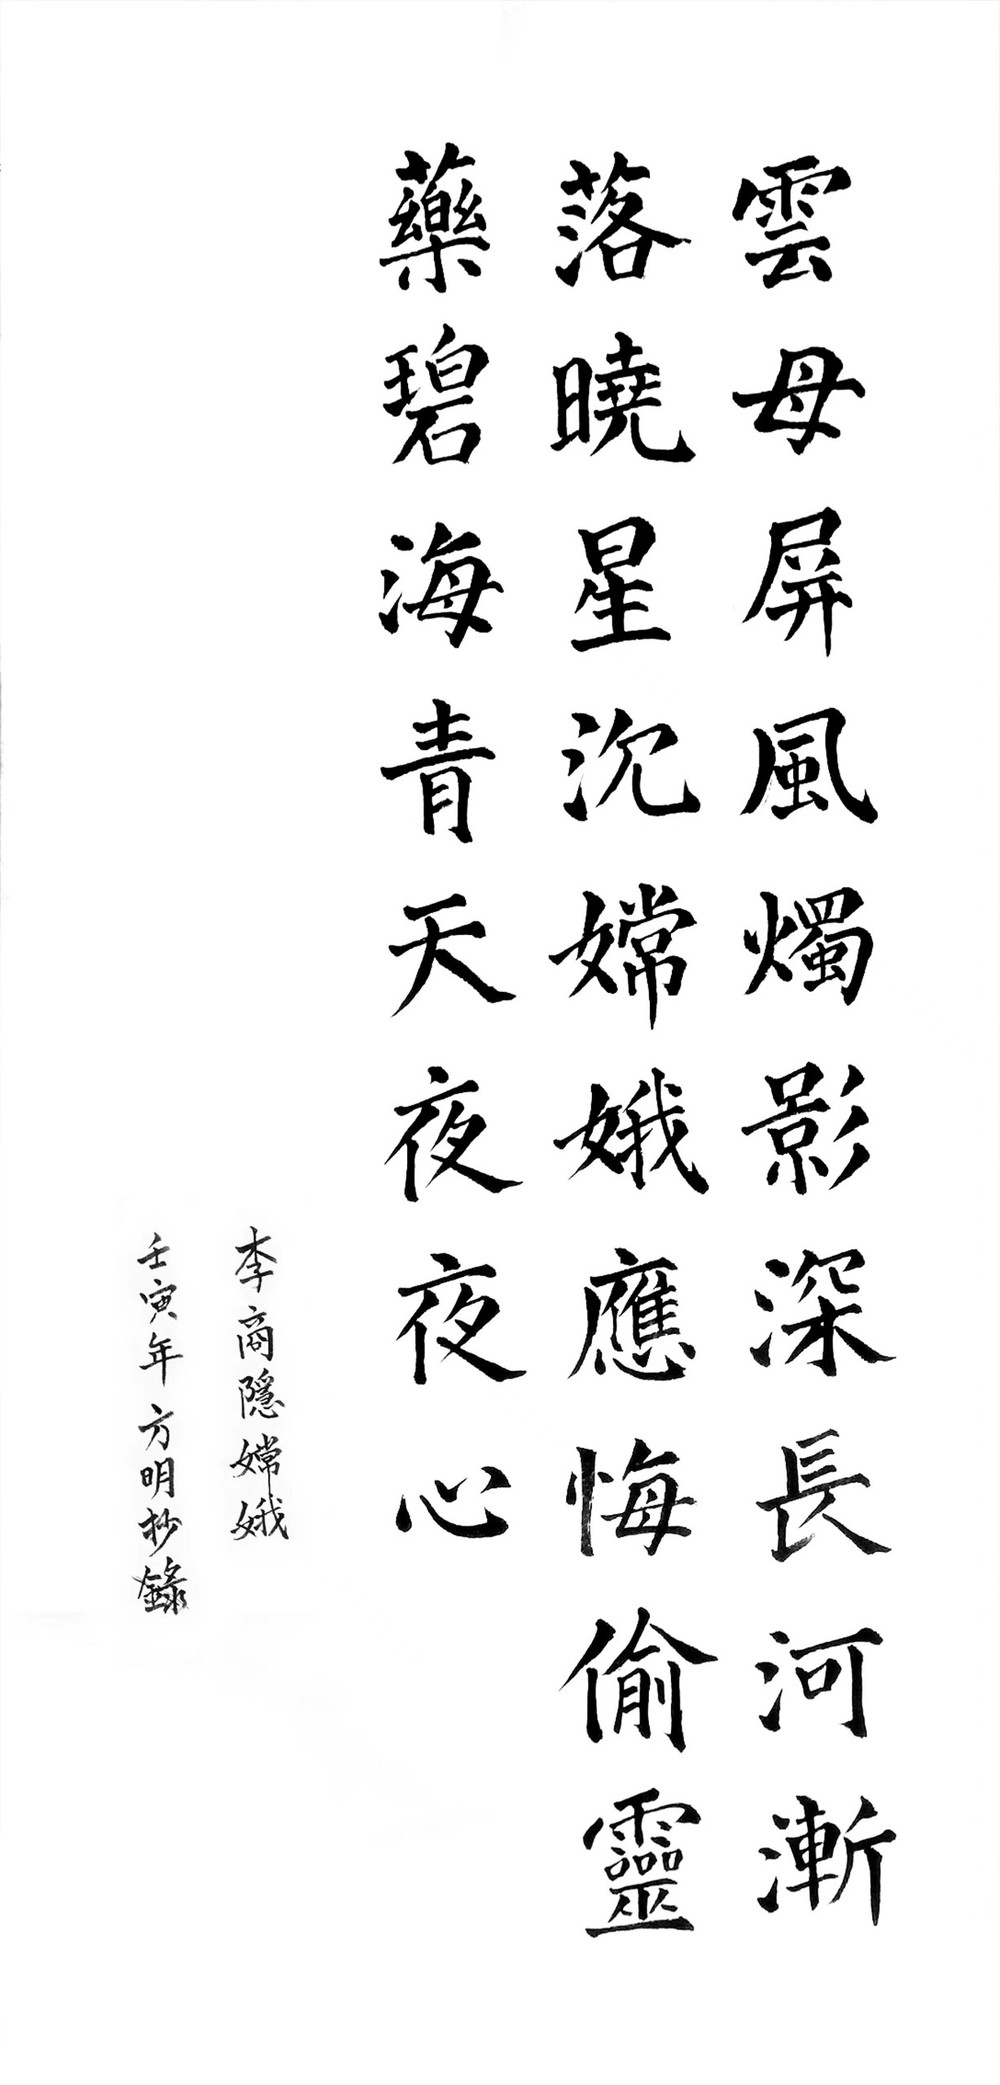 雲母屏風燭影深長河漸
落曉星沉嫦娥應悔偷靈
藥碧海青天夜夜心
李商隱嫦娥
壬寅年方明抄錄